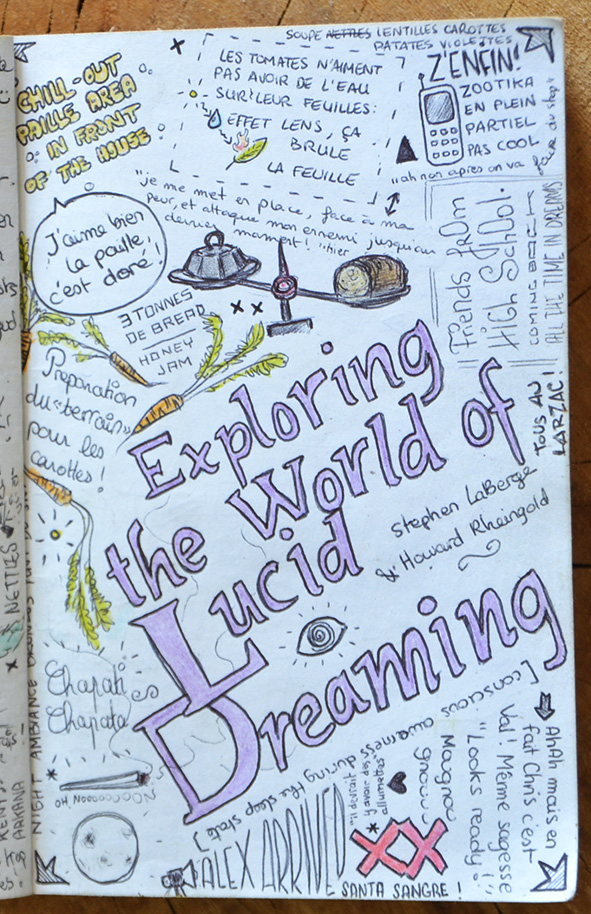 SOUPE NETTLES LENTILLES CAROTTES
PATATES VIOLETTES
CHILL-OUT
PAILLE AREA
IN FRONT
OF THE HOUSE
LES TOMATES N'AIMENT
PAS AVOIR DE L'EAU
SUR LEUR FEUILLES:
EFFET LENS, ÇA
BRULE
LA FEUILLE
Z'ENFIN!
ZOOTIKA
EN PLEIN
PARTIEL
PAS COOL
"ah non après on va faire du stop"
"je me met en place, face à ma
peur, et attaque mon ennemi jusqu'au
dernier moment!" hier
J'aime bien
la paille,
c'est doré!
Friends from
High School.
COMING BACK
ALL THE TIME IN DREAMS
3 TONNES
DE BREAD
HONEY
JAM
Preparation
du "terrain"
pour les
carottes!
TOUS AU
LARZAC!
Exploring
the World of
Lucid
Dreaming
Stephen LaBerge
& Howard Rheingold
[conscious awarness during the sleep state]
NETTLES
Chapati es
Chapata
NIGHT AMBIANCE
OH NOOOOOOOO
NOOO
ALEX ARRIVED
XX
SANTA SANGRE!
Maugnou
gnou
"Looks ready!"
Val! Même sagesse
AhAh mais en
fait Chris c'est
ARKANA